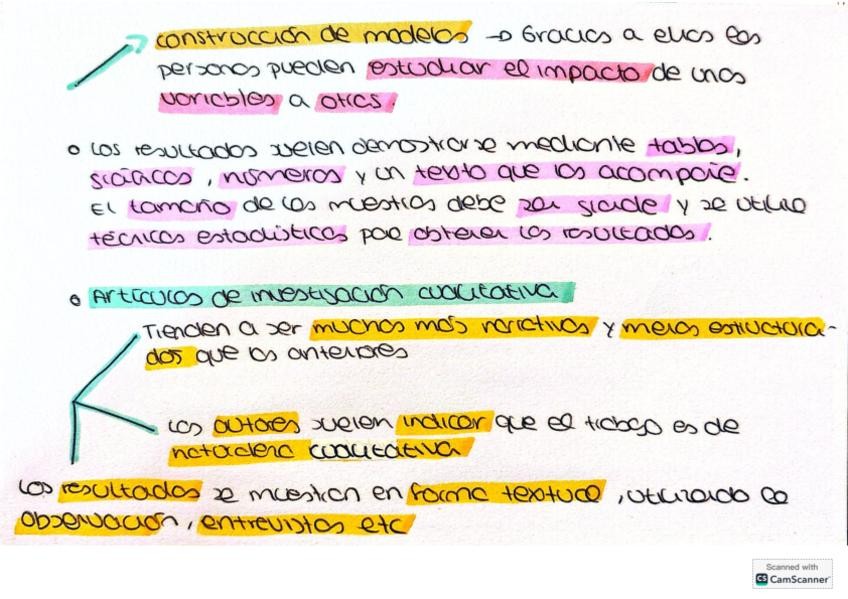 construcción de modelos → Gracias a ellos las
personas pueden estudiar el impacto de unas
variables a otras.
Los resultados suelen demostrarse mediante tablas,
gráficos, números y un texto que los acompañe.
El tamaño de las muestras debe ser grande y se utiliza
técnicas estadísticas para obtener los resultados.
Artículos de investigación cualitativa
Tienden a ser muchos más narrativos y menos estructura-
dos que los anteriores
Los autores suelen indicar que el trabajo es de
naturaleza cualitativa
Los resultados se muestran en forma textual, utilizando la
observación, entrevistas etc
Scanned with
CS CamScanner